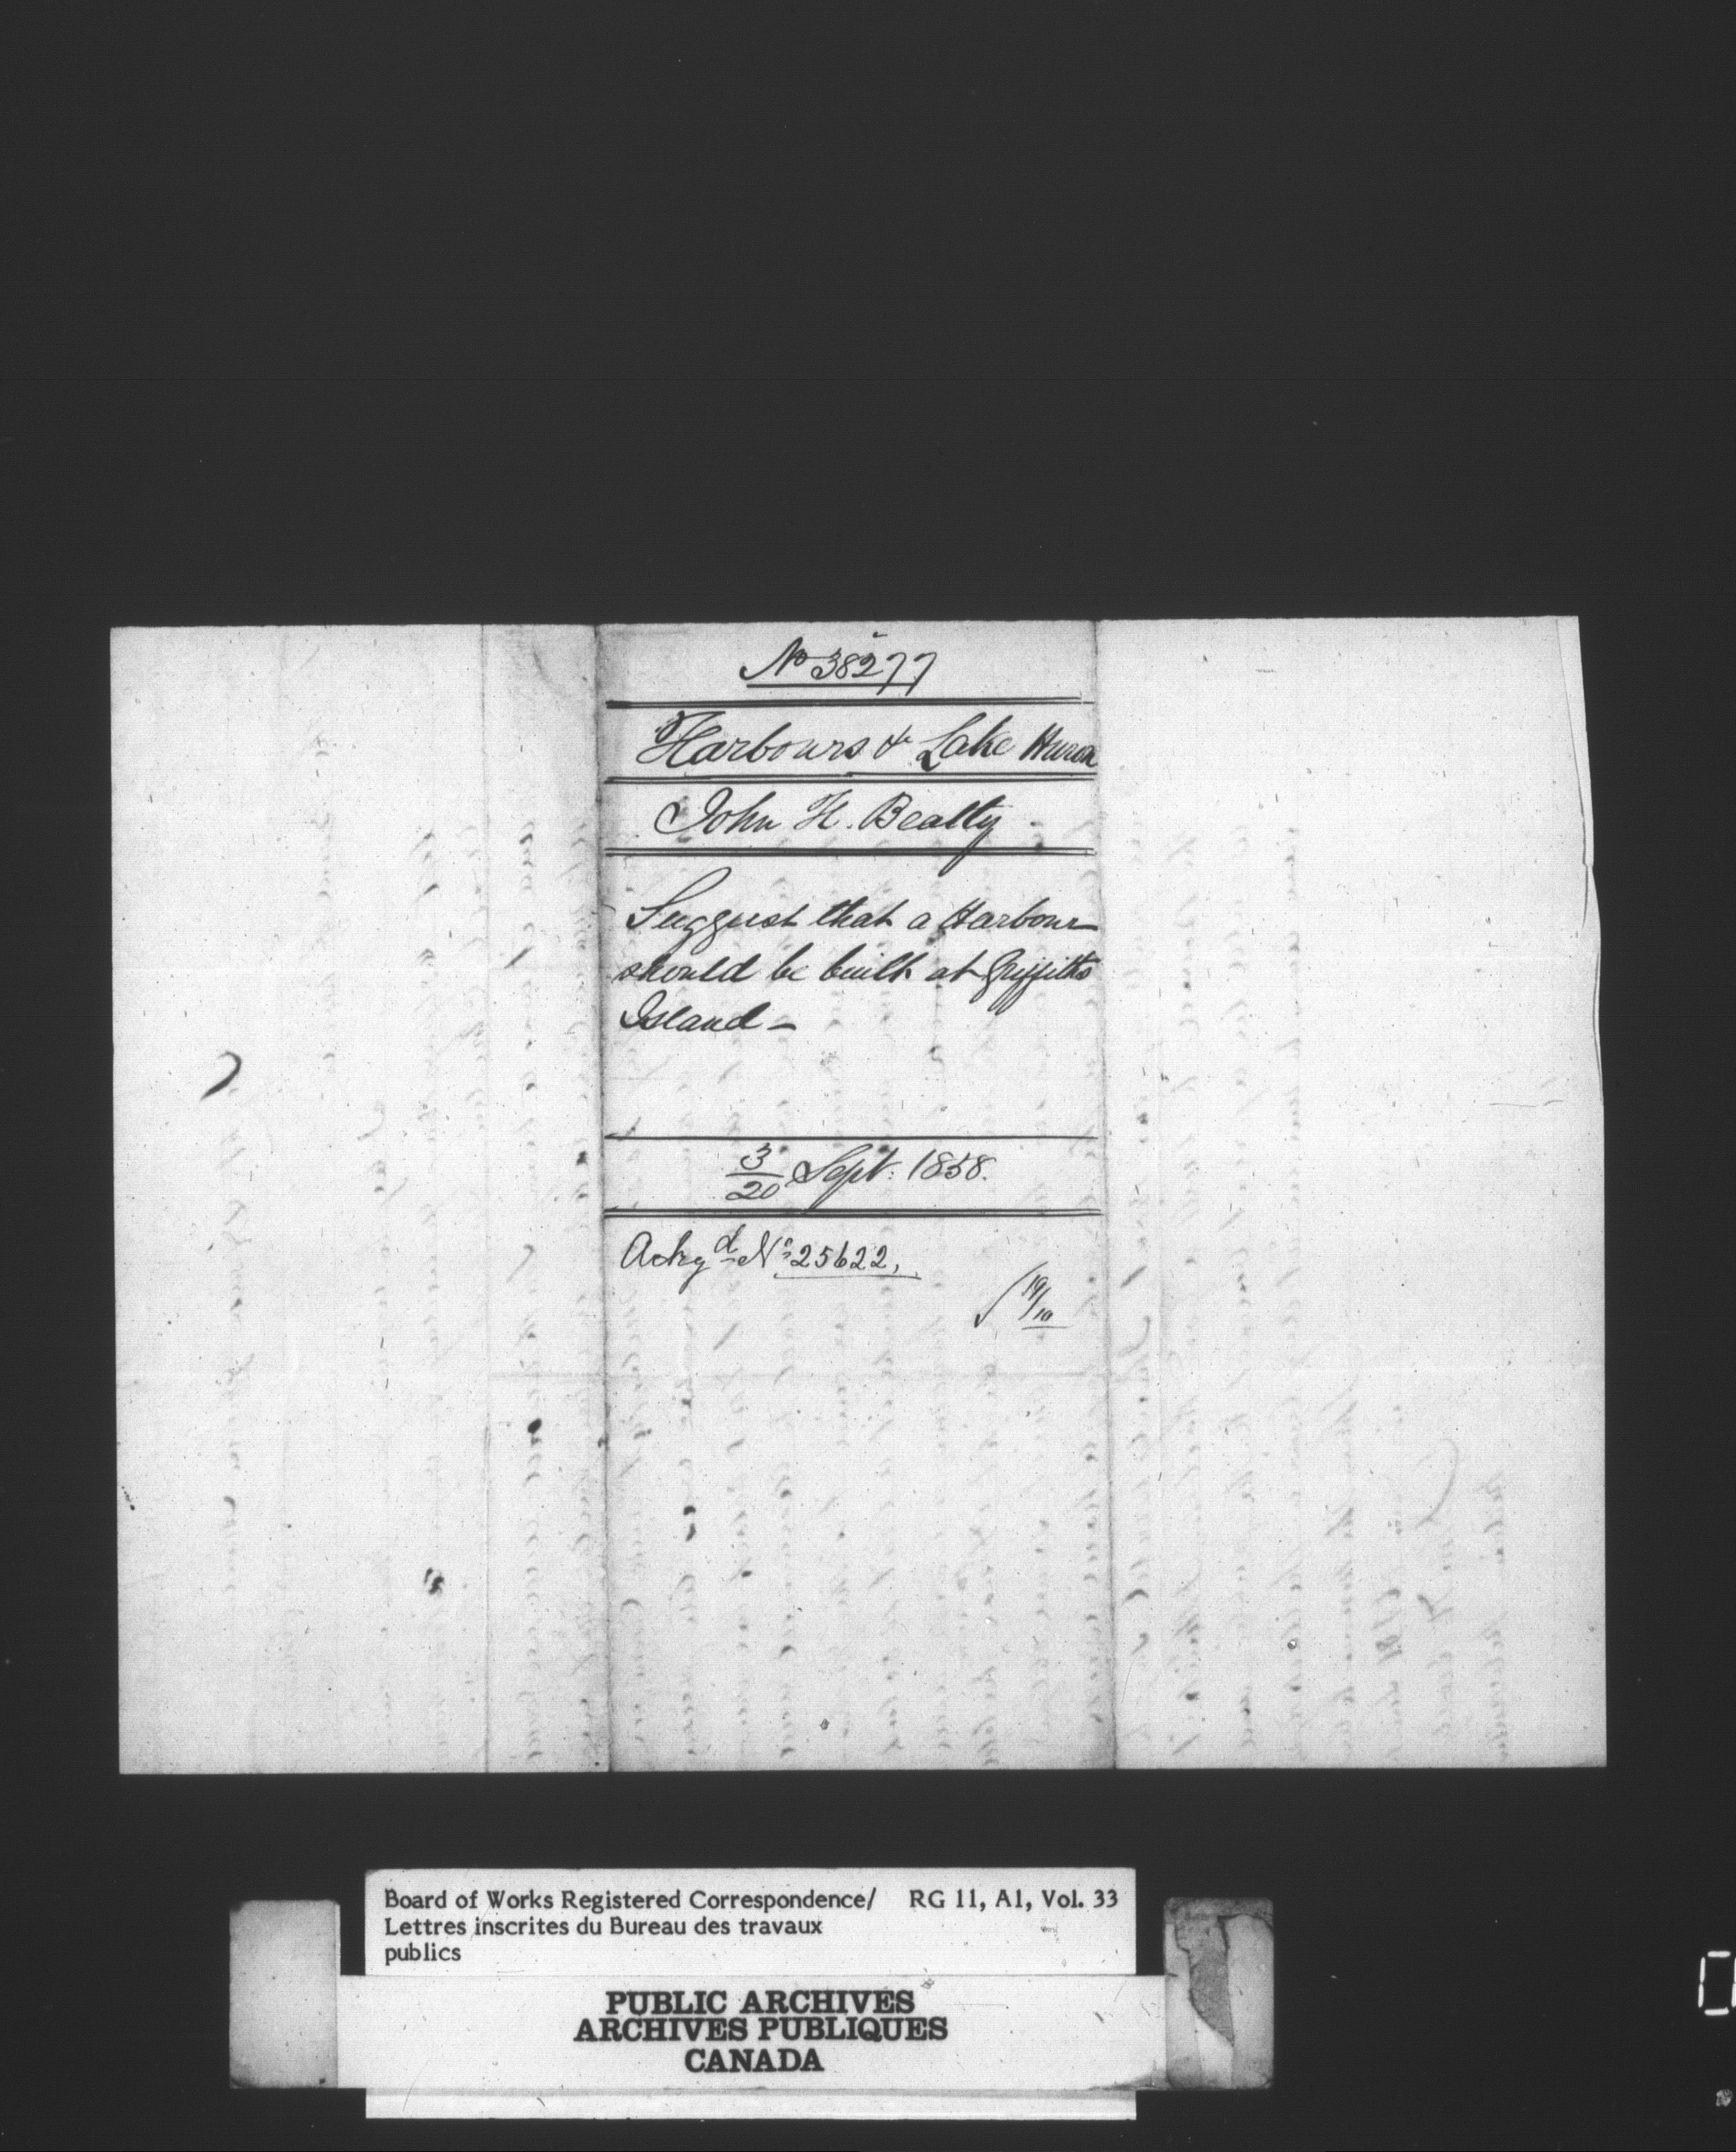 No 38277
Harbours & Lake Huron
John H. Beatty
Suggest that a Harbour
should be built at Griffiths
Island —
3/20 Sept. 1858.
Ackgd No 25622,
19/10
Board of Works Registered Correspondence/ RG 11, A1, Vol. 33
Lettres inscrites du Bureau des travaux
publics
PUBLIC ARCHIVES
ARCHIVES PUBLIQUES
CANADA